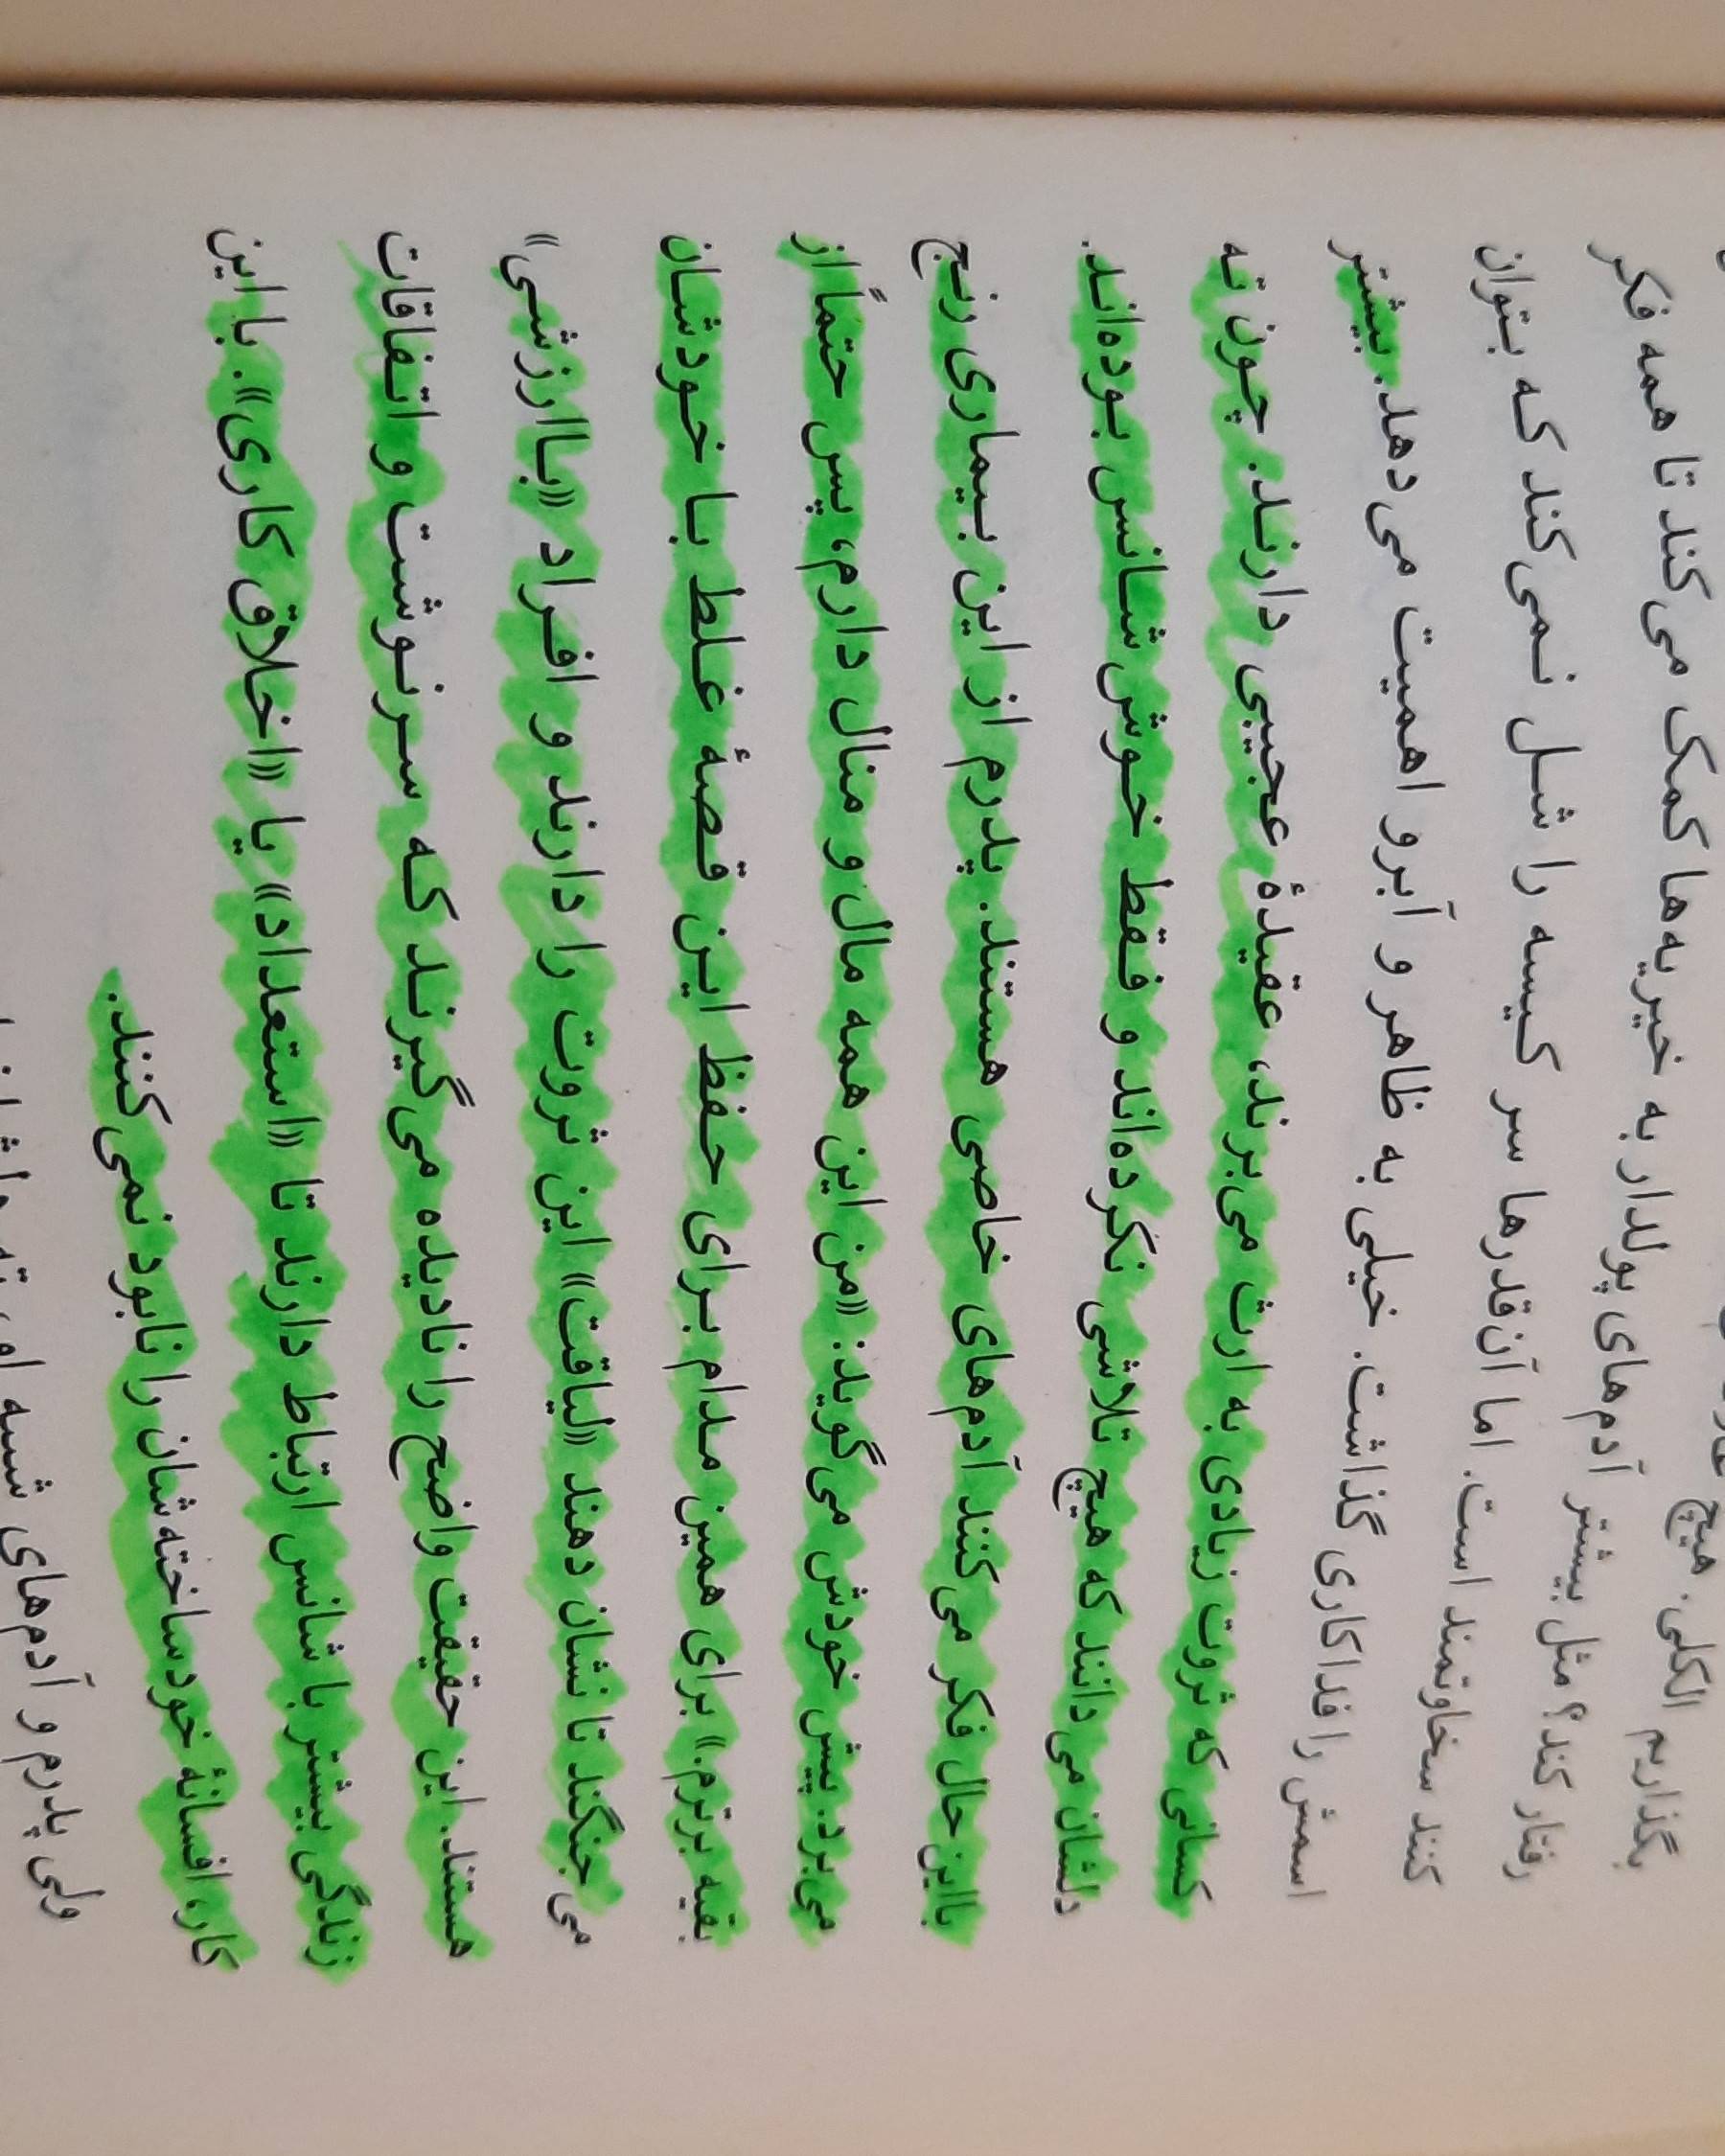 بگذاریم الکلی. هیچ
رفتار کند؟ مثل بیشتر آدم‌های پولدار به خیریه‌ها کمک می‌کند تا همه فکر
کنند سخاوتمند است. اما آن‌قدرها سر کیسه را شل نمی‌کند که بتوان
اسمش را فداکاری گذاشت. خیلی به ظاهر و آبرو اهمیت می‌دهد. بیشتر
کسانی که ثروت زیادی به ارث می‌برند، عقیدهٔ عجیبی دارند. چون ته
دلشان می‌دانند که هیچ تلاشی نکرده‌اند و فقط خوش‌شانس بوده‌اند.
بااین‌حال فکر می‌کنند آدم‌های خاصی هستند. پدرم از این بیماری رنج
می‌برد. پیش خودش می‌گوید: «من این همه مال و منال دارم، پس حتماً از
بقیه برترم.» برای همین مدام برای حفظ این قصهٔ غلط با خودشان
می‌جنگند تا نشان دهند «لیاقت» این ثروت را دارند و افراد «باارزشی»
هستند. این حقیقت واضح را نادیده می‌گیرند که سرنوشت و اتفاقات
زندگی بیشتر با شانس ارتباط دارند تا «استعداد» یا «اخلاق کاری». با این
کار، افسانهٔ خودساخته‌شان را نابود نمی‌کنند.
ولی پدرم و آدم‌های شبیه او، ته